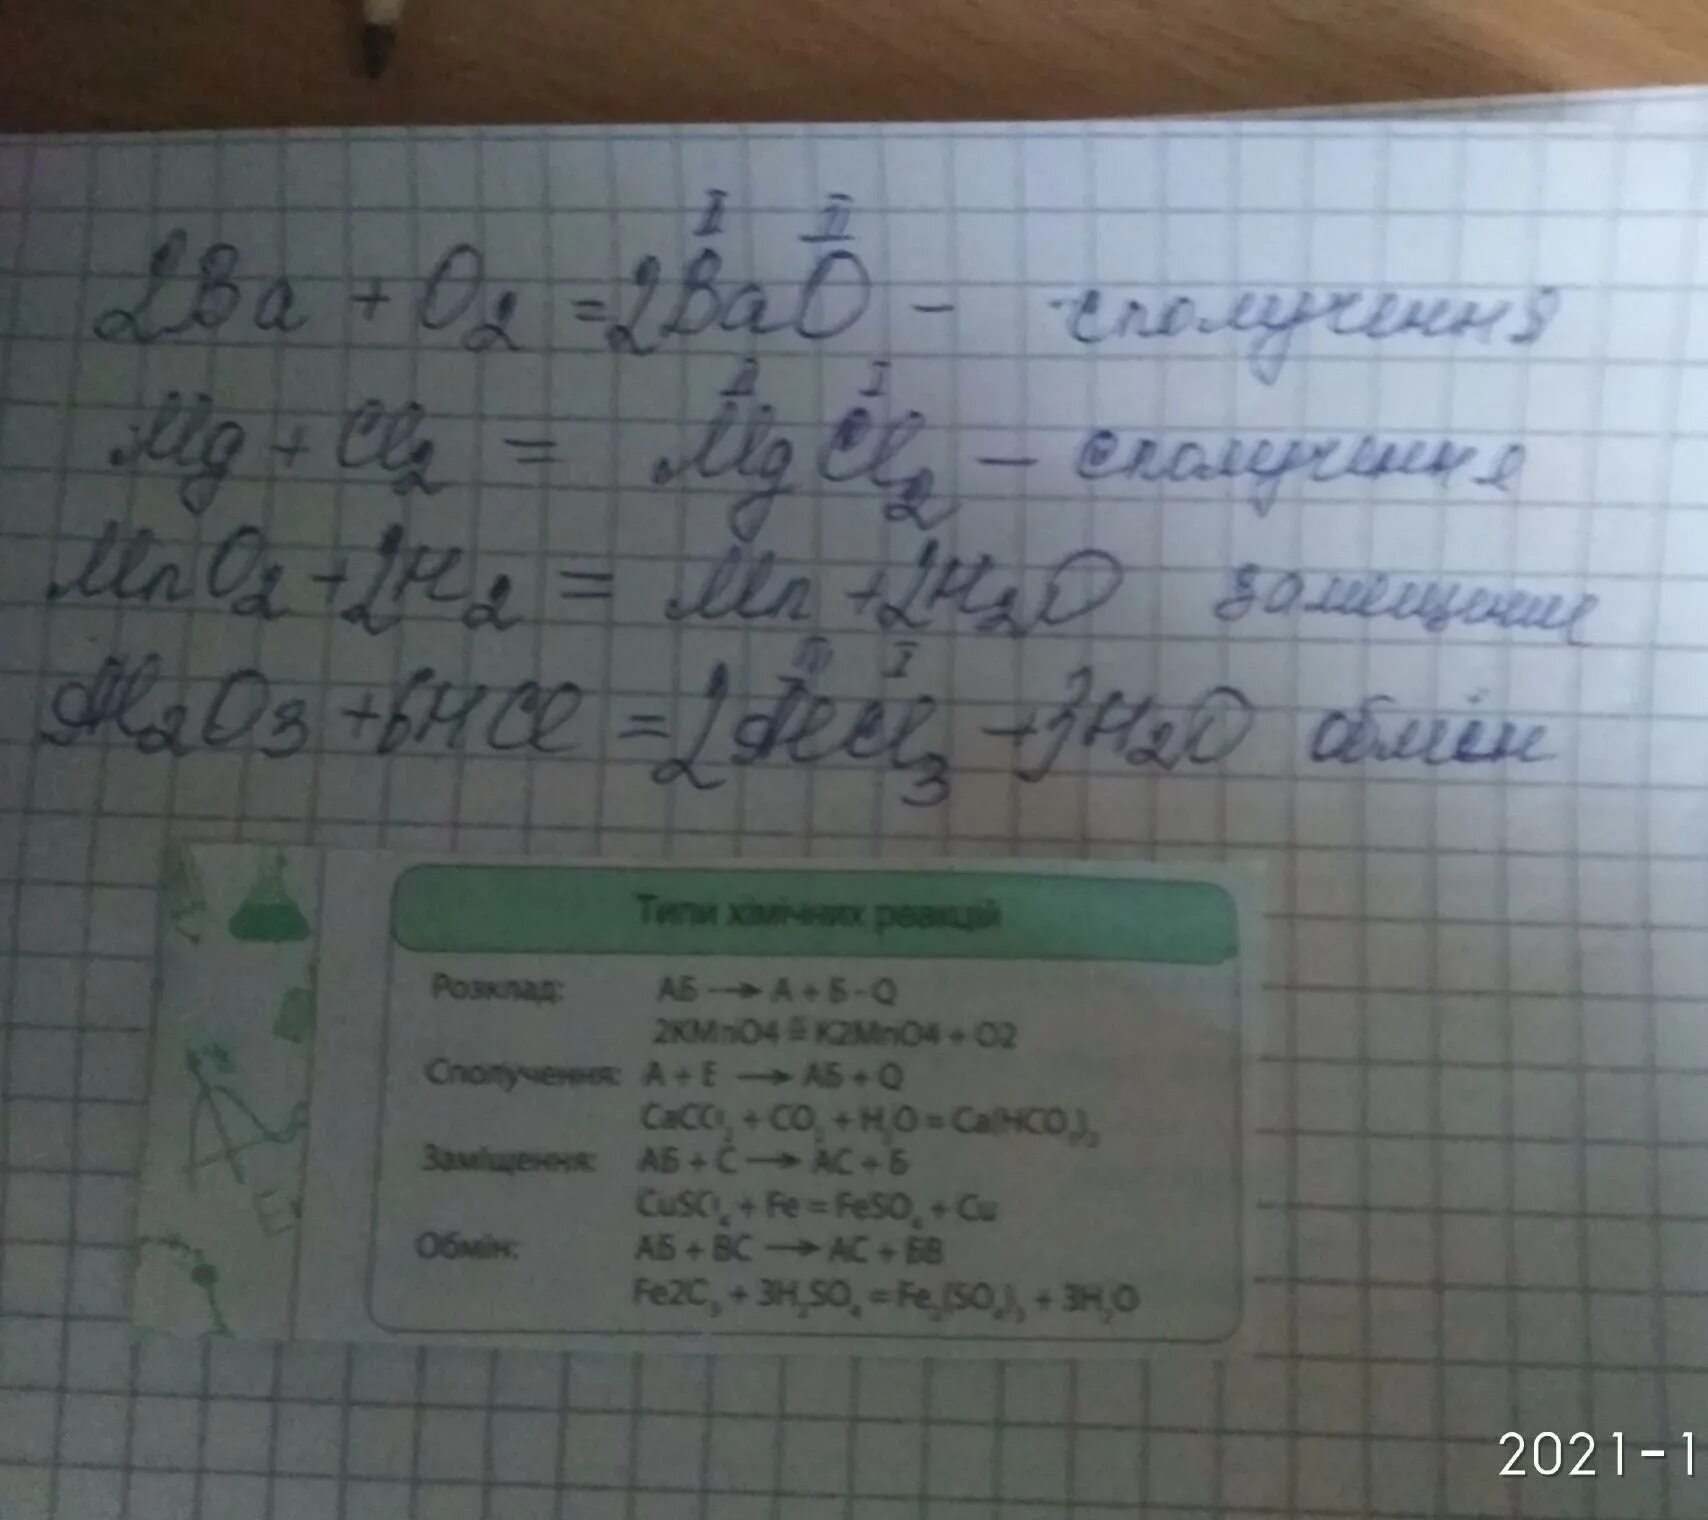 2Ba + O2 = 2BaO - сполучення
II II
Mg + Cl2 = MgCl2 - сполучення
II I
MnO2 + 2H2 = Mn + 2H2O заміщення
Al2O3 + 6HCl = 2AlCl3 + 3H2O обмін
III I
Типи хімічних реакцій
Розклад: АБ → А + Б - Q
2KMnO4 = K2MnO4 + O2
Сполучення: А + Б → АБ + Q
+ CO2 + H2O = Ca(HCO3)2
Заміщення: АБ + С → АС + Б
CuSO4 + Fe = FeSO4 + Cu
Обмін: АБ + ВС → АС + БВ
+ 3H2SO4 = Fe2(SO4)3 + 3H2O
2021-1